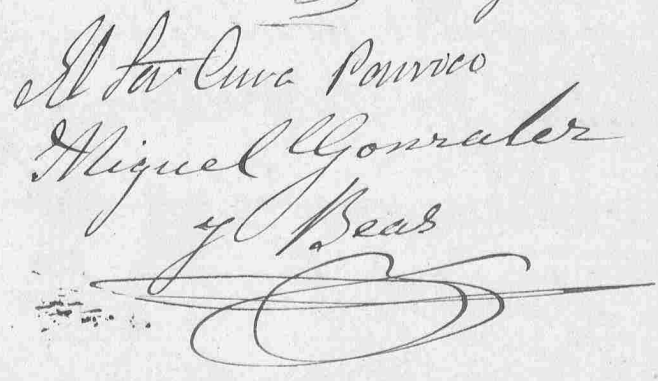 El Sor Cura Parroco
Miguel Gonzalez
y Beas